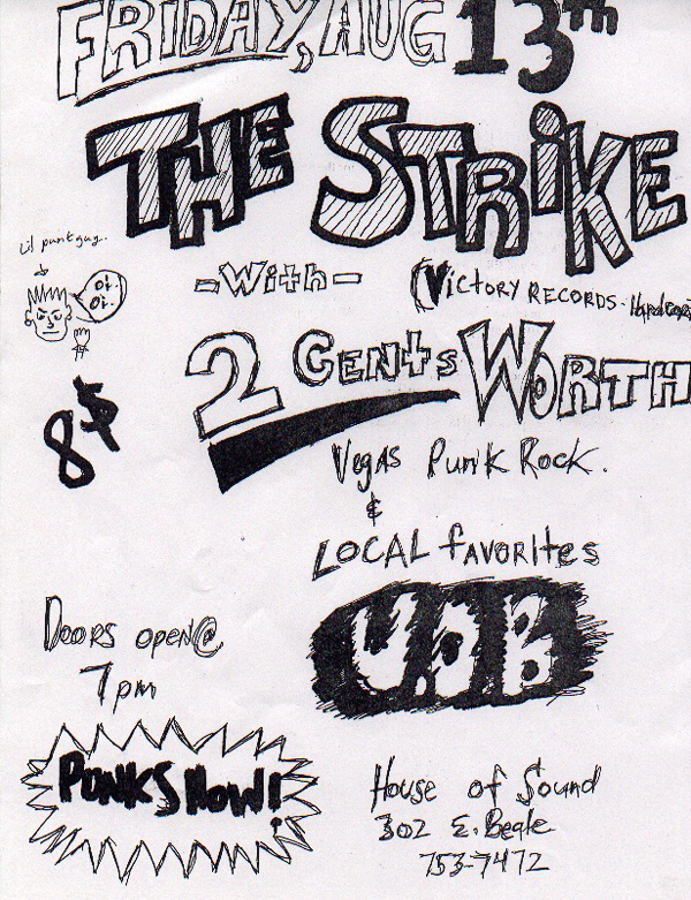 FRIDAY, AUG 13th
THE STRIKE
Lil punk guy.
-With- (VICTORY RECORDS - Hardcore
oi. oi.
2 CENTS WORTH
8$
VEGAS PUNK ROCK.
&
LOCAL fAVORITES
U.P.B
DOORS open@
7 pm
PUNKS NOW!
House of Sound
302 E. Beale
753-7472